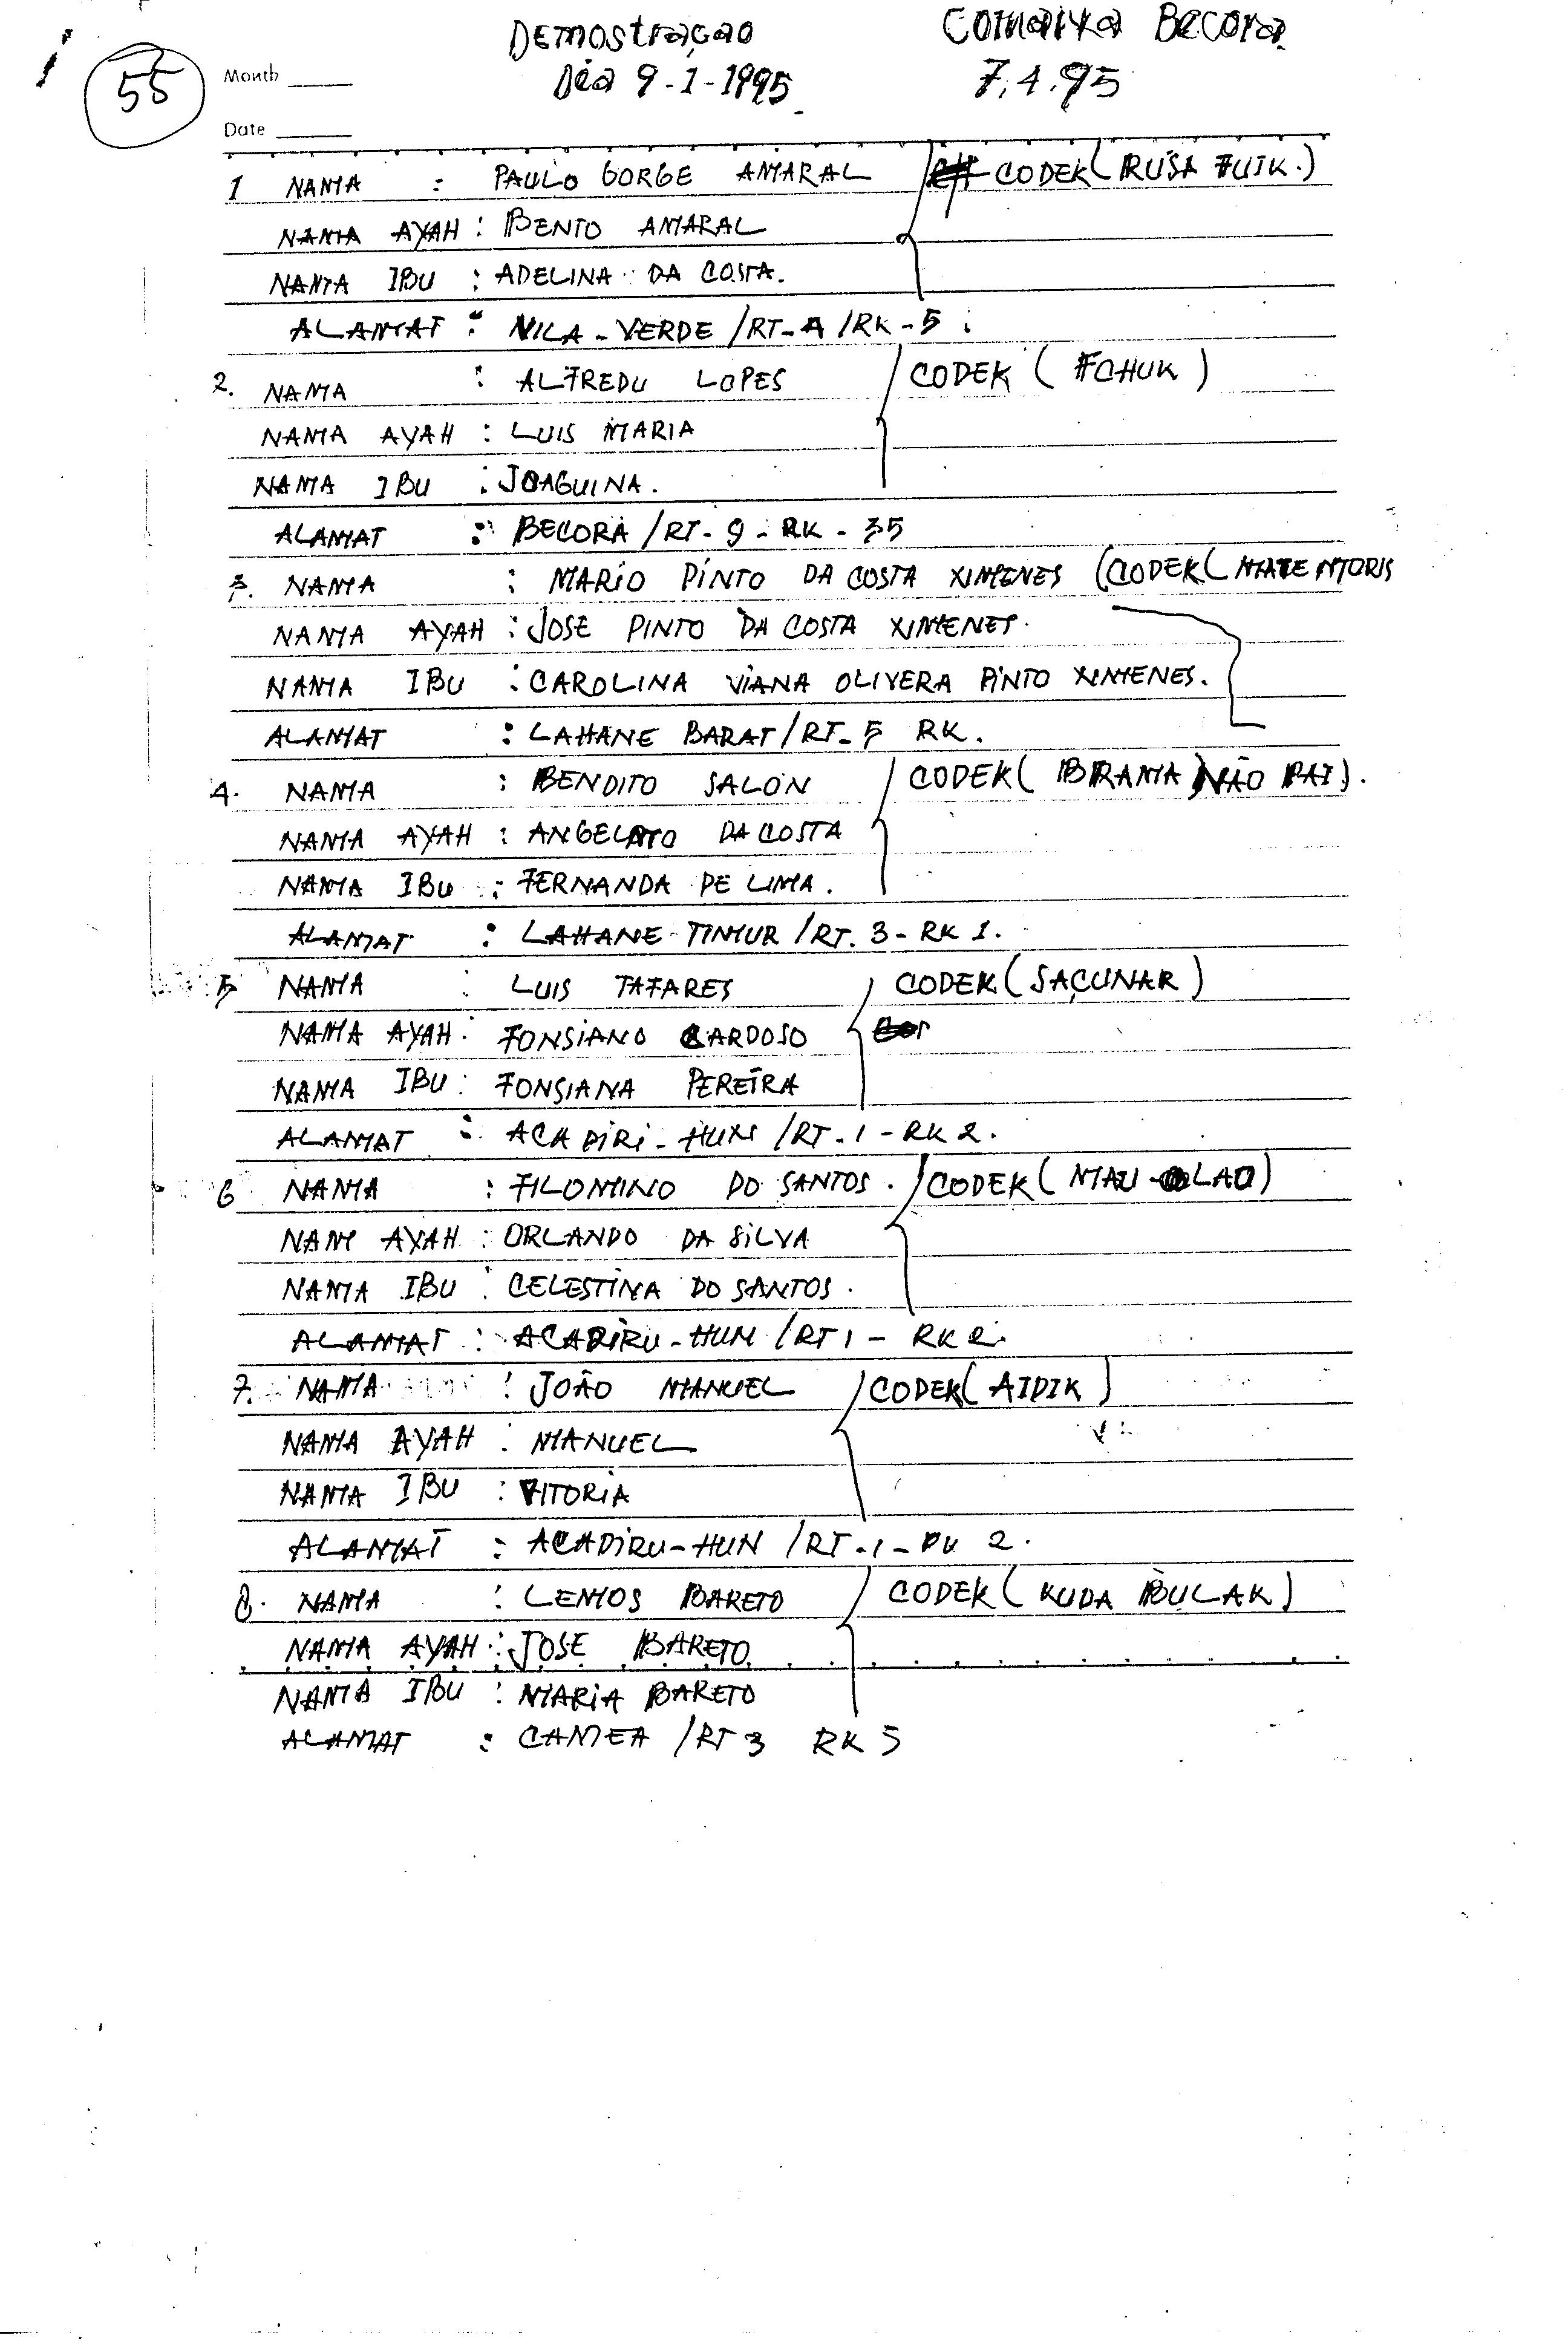 55
Month
Date
DEMOStraçao
Dia 9-1-1995
Comarka Becora
7.4.95
1 NAMA : PAULO GORGE AMARAL CODEK (RUSA FUIK.)
NAMA AYAH : BENTO AMARAL
NAMA IBU : ADELINA DA COSTA.
ALAMAT : VILA-VERDE /RT-4 /RK-5.
2. NAMA : ALFREDU LOPES CODEK ( )
NAMA AYAH : LUIS MARIA
NAMA IBU : JOAGUINA.
ALAMAT : BECORA /RT-9-RK-35
3. NAMA : MARIO PINTO DA COSTA XIMENES (CODEK (MATE MORIS
NAMA AYAH : JOSE PINTO DA COSTA XIMENES.
NAMA IBU : CAROLINA VIANA OLIVERA PINTO XIMENES.
ALAMAT : LAHANE BARAT/RT-5 RK.
4. NAMA : BENDITO SALON CODEK (BRAMA) NÃO PAI).
NAMA AYAH : ANGELATO DA COSTA
NAMA IBU : FERNANDA DE LIMA.
ALAMAT : LAHANE TIMUR /RT. 3-RK 1.
5 NAMA : LUIS TAFARES CODEK (SAÇUNAR)
NAMA AYAH : FONSIANO CARDOSO
NAMA IBU : FONSIANA PEREIRA
ALAMAT : ACADIRI-HUN /RT-1-RK 2.
6 NAMA : FILOMINO DO SANTOS. CODEK (MAU-LAO)
NAM AYAH : ORLANDO DA SILVA
NAMA IBU : CELESTINA DO SANTOS.
ALAMAT : ACADIRU-HUN /RT 1-RK 2.
7. NAMA : JOÃO MANUEL CODEK (AIDIK)
NAMA AYAH : MANUEL
NAMA IBU : VITORIA
ALAMAT : ACADIRU-HUN /RT-1-RK 2.
8. NAMA : LEMOS BARETO CODEK (KUDA BULAK)
NAMA AYAH : JOSE BARETO
NAMA IBU : MARIA BARETO
ALAMAT : CAMEA /RT 3 RK 5